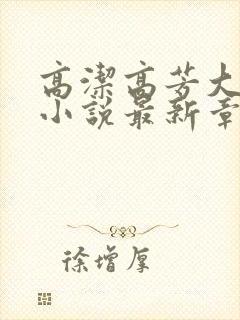 高潔高芳大
小說最新章
徐增厚